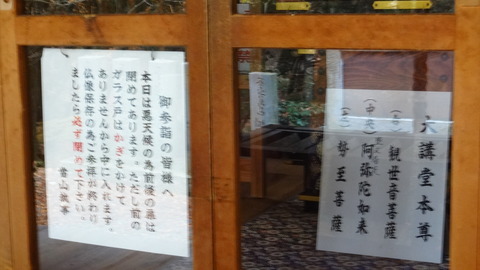 御参詣の皆様へ
本日は悪天候の為前後の扉は
閉めてあります。ただし前の
ガラス戸はかぎをかけて
ありませんから中に入れます。
仏像保存の為ご参拝が終わり
ましたら必ず閉めて下さい。
當山執事
大講堂本尊
(右)観世音菩薩
(中央)阿弥陀如来
(左)勢至菩薩